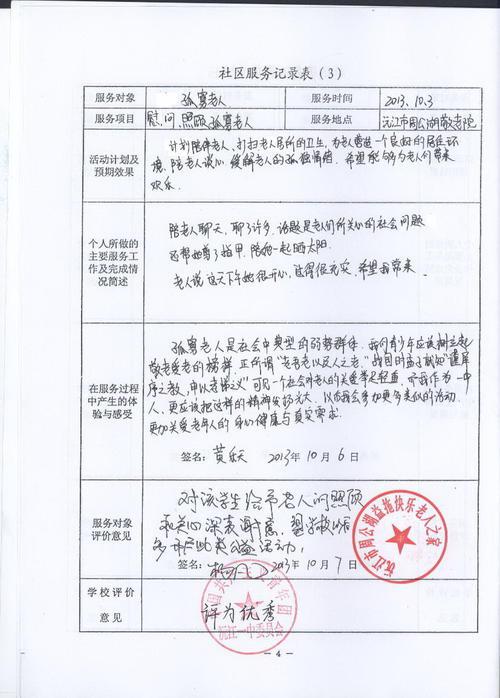 社区服务记录表（3）
服务对象 孤寡老人 服务时间 2013.10.3
服务项目 慰问、照顾孤寡老人 服务地点 沅江市周公湖敬老院
活动计划及预期效果
计划陪伴老人，打扫老人居所的卫生，为老人营造一个良好的居住环
境，陪老人谈心，缓解老人的孤独情绪。希望能够为老人们带来
欢乐。
个人所做的主要服务工作及完成情况简述
陪老人聊天，聊了许多，话题是老人们所关心的社会问题
还帮她剪了指甲，陪她一起晒太阳。
老人说这天下午她很开心，过得很充实，希望我常来。
在服务过程中产生的体验与感受
孤寡老人是社会中典型的弱势群体，我们青少年应该树立起
敬老爱老的榜样，正所谓“老吾老以及人之老”，战国时孟子就知“谨庠
序之教，申以孝悌之义”可见一个社会对老人的关爱举足轻重，而我作为一中
人，更应该把这样的精神发扬光大，以后我会参加更多类似的活动，
更加关爱老年人的身心健康与真实需求。
签名： 2013年10月6日
服务对象评价意见
对该学生给予老人们照顾
和关心深表谢意，望学校以后
多开展此类公益活动。
签名： 2013年10月7日
沅江市周公湖益拖快乐老人之家
学校评价意见
评为优秀
沅江一中委员会
— 4 —